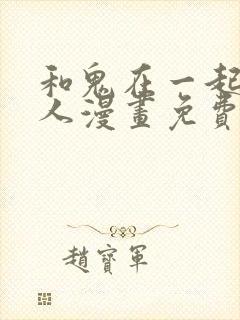 和鬼在一起
人漫畫免費
趙寶軍